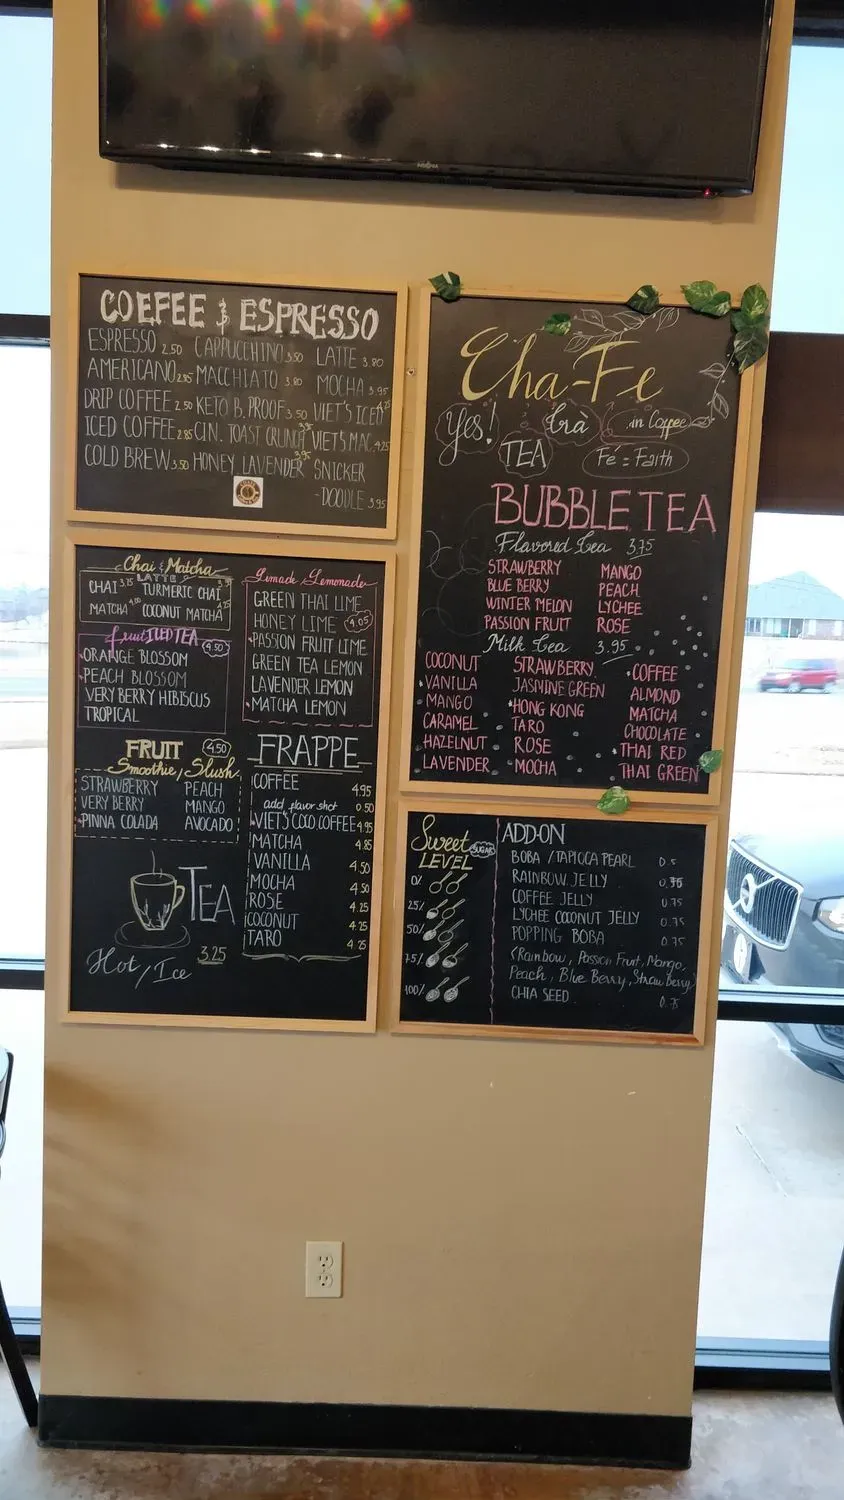 INSIGNIA
COEFEE & ESPRESSO
ESPRESSO 2.50 CAPPUCCINO 3.50 LATTE 3.80
AMERICANO 2.95 MACCHIATO 3.80 MOCHA 3.95
DRIP COFFEE 2.50 KETO B. PROOF 3.50 VIET'S ICED 4.25
ICED COFFEE 2.85 CIN. TOAST CRUNCH 3.95 VIET'S MAC. 4.25
COLD BREW 3.50 HONEY LAVENDER 3.95 SNICKER
-DOODLE 3.95
Chai & Matcha
LATTE
CHAI 3.75 TURMERIC CHAI
MATCHA COCONUT MATCHA
fruit ICED TEA 4.50
ORANGE BLOSSOM
PEACH BLOSSOM
VERY BERRY HIBISCUS
TROPICAL
Limade Lemonade
GREEN THAI LIME
HONEY LIME 4.05
PASSION FRUIT LIME
GREEN TEA LEMON
LAVENDER LEMON
MATCHA LEMON
FRUIT 4.50
Smoothie/Slush
STRAWBERRY PEACH
VERY BERRY MANGO
PINNA COLADA AVOCADO
TEA
3.25
Hot/Ice
FRAPPE
COFFEE 4.95
add flavor shot 0.50
VIET'S COCO.COFFEE 4.95
MATCHA 4.85
VANILLA 4.50
MOCHA 4.50
ROSE 4.25
COCONUT 4.25
TARO 4.25
Cha-Fe
Yes! trà in Coffee
TEA Fe = Faith
BUBBLE TEA
Flavored tea 3.75
STRAWBERRY MANGO
BLUE BERRY PEACH
WINTER MELON LYCHEE
PASSION FRUIT ROSE
Milk tea 3.95
COCONUT STRAWBERRY COFFEE
VANILLA JASMINE GREEN ALMOND
MANGO HONG KONG MATCHA
CARAMEL TARO CHOCOLATE
HAZELNUT ROSE THAI RED
LAVENDER MOCHA THAI GREEN
Sweet
LEVEL SUGAR
0%
25%
50%
75%
100%
ADD-ON
BOBA / TAPIOCA PEARL 0.5
RAINBOW JELLY 0.75
COFFEE JELLY 0.75
LYCHEE COCONUT JELLY 0.75
POPPING BOBA 0.75
(Rainbow, Passion Fruit, Mango,
Peach, Blue Berry, Straw Berry)
CHIA SEED 0.75